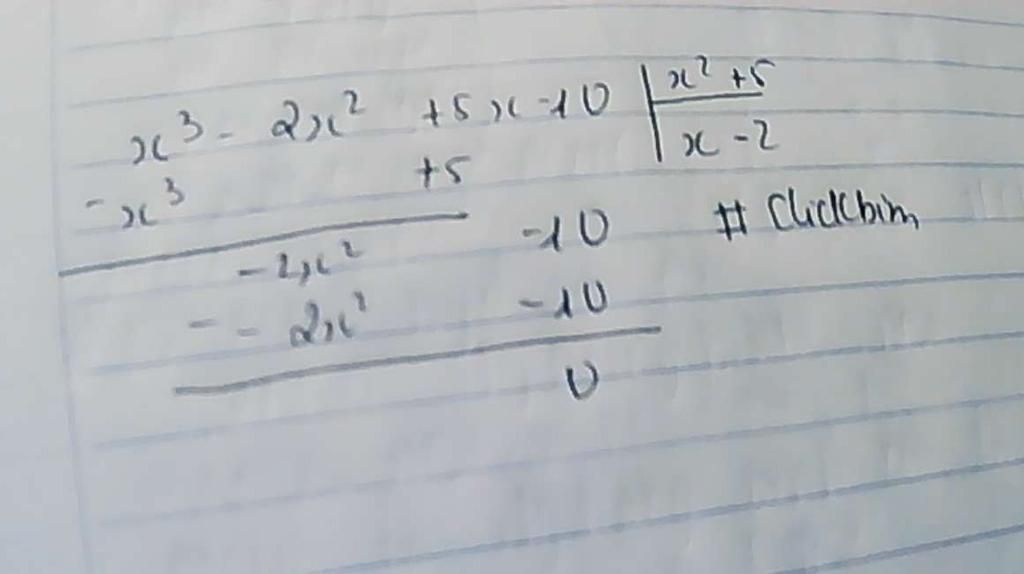 x³ - 2x² + 5x - 10 | x² + 5
- x³ + 5 | x - 2
- 2x² - 10 # Clickbim
- - 2x² - 10
0